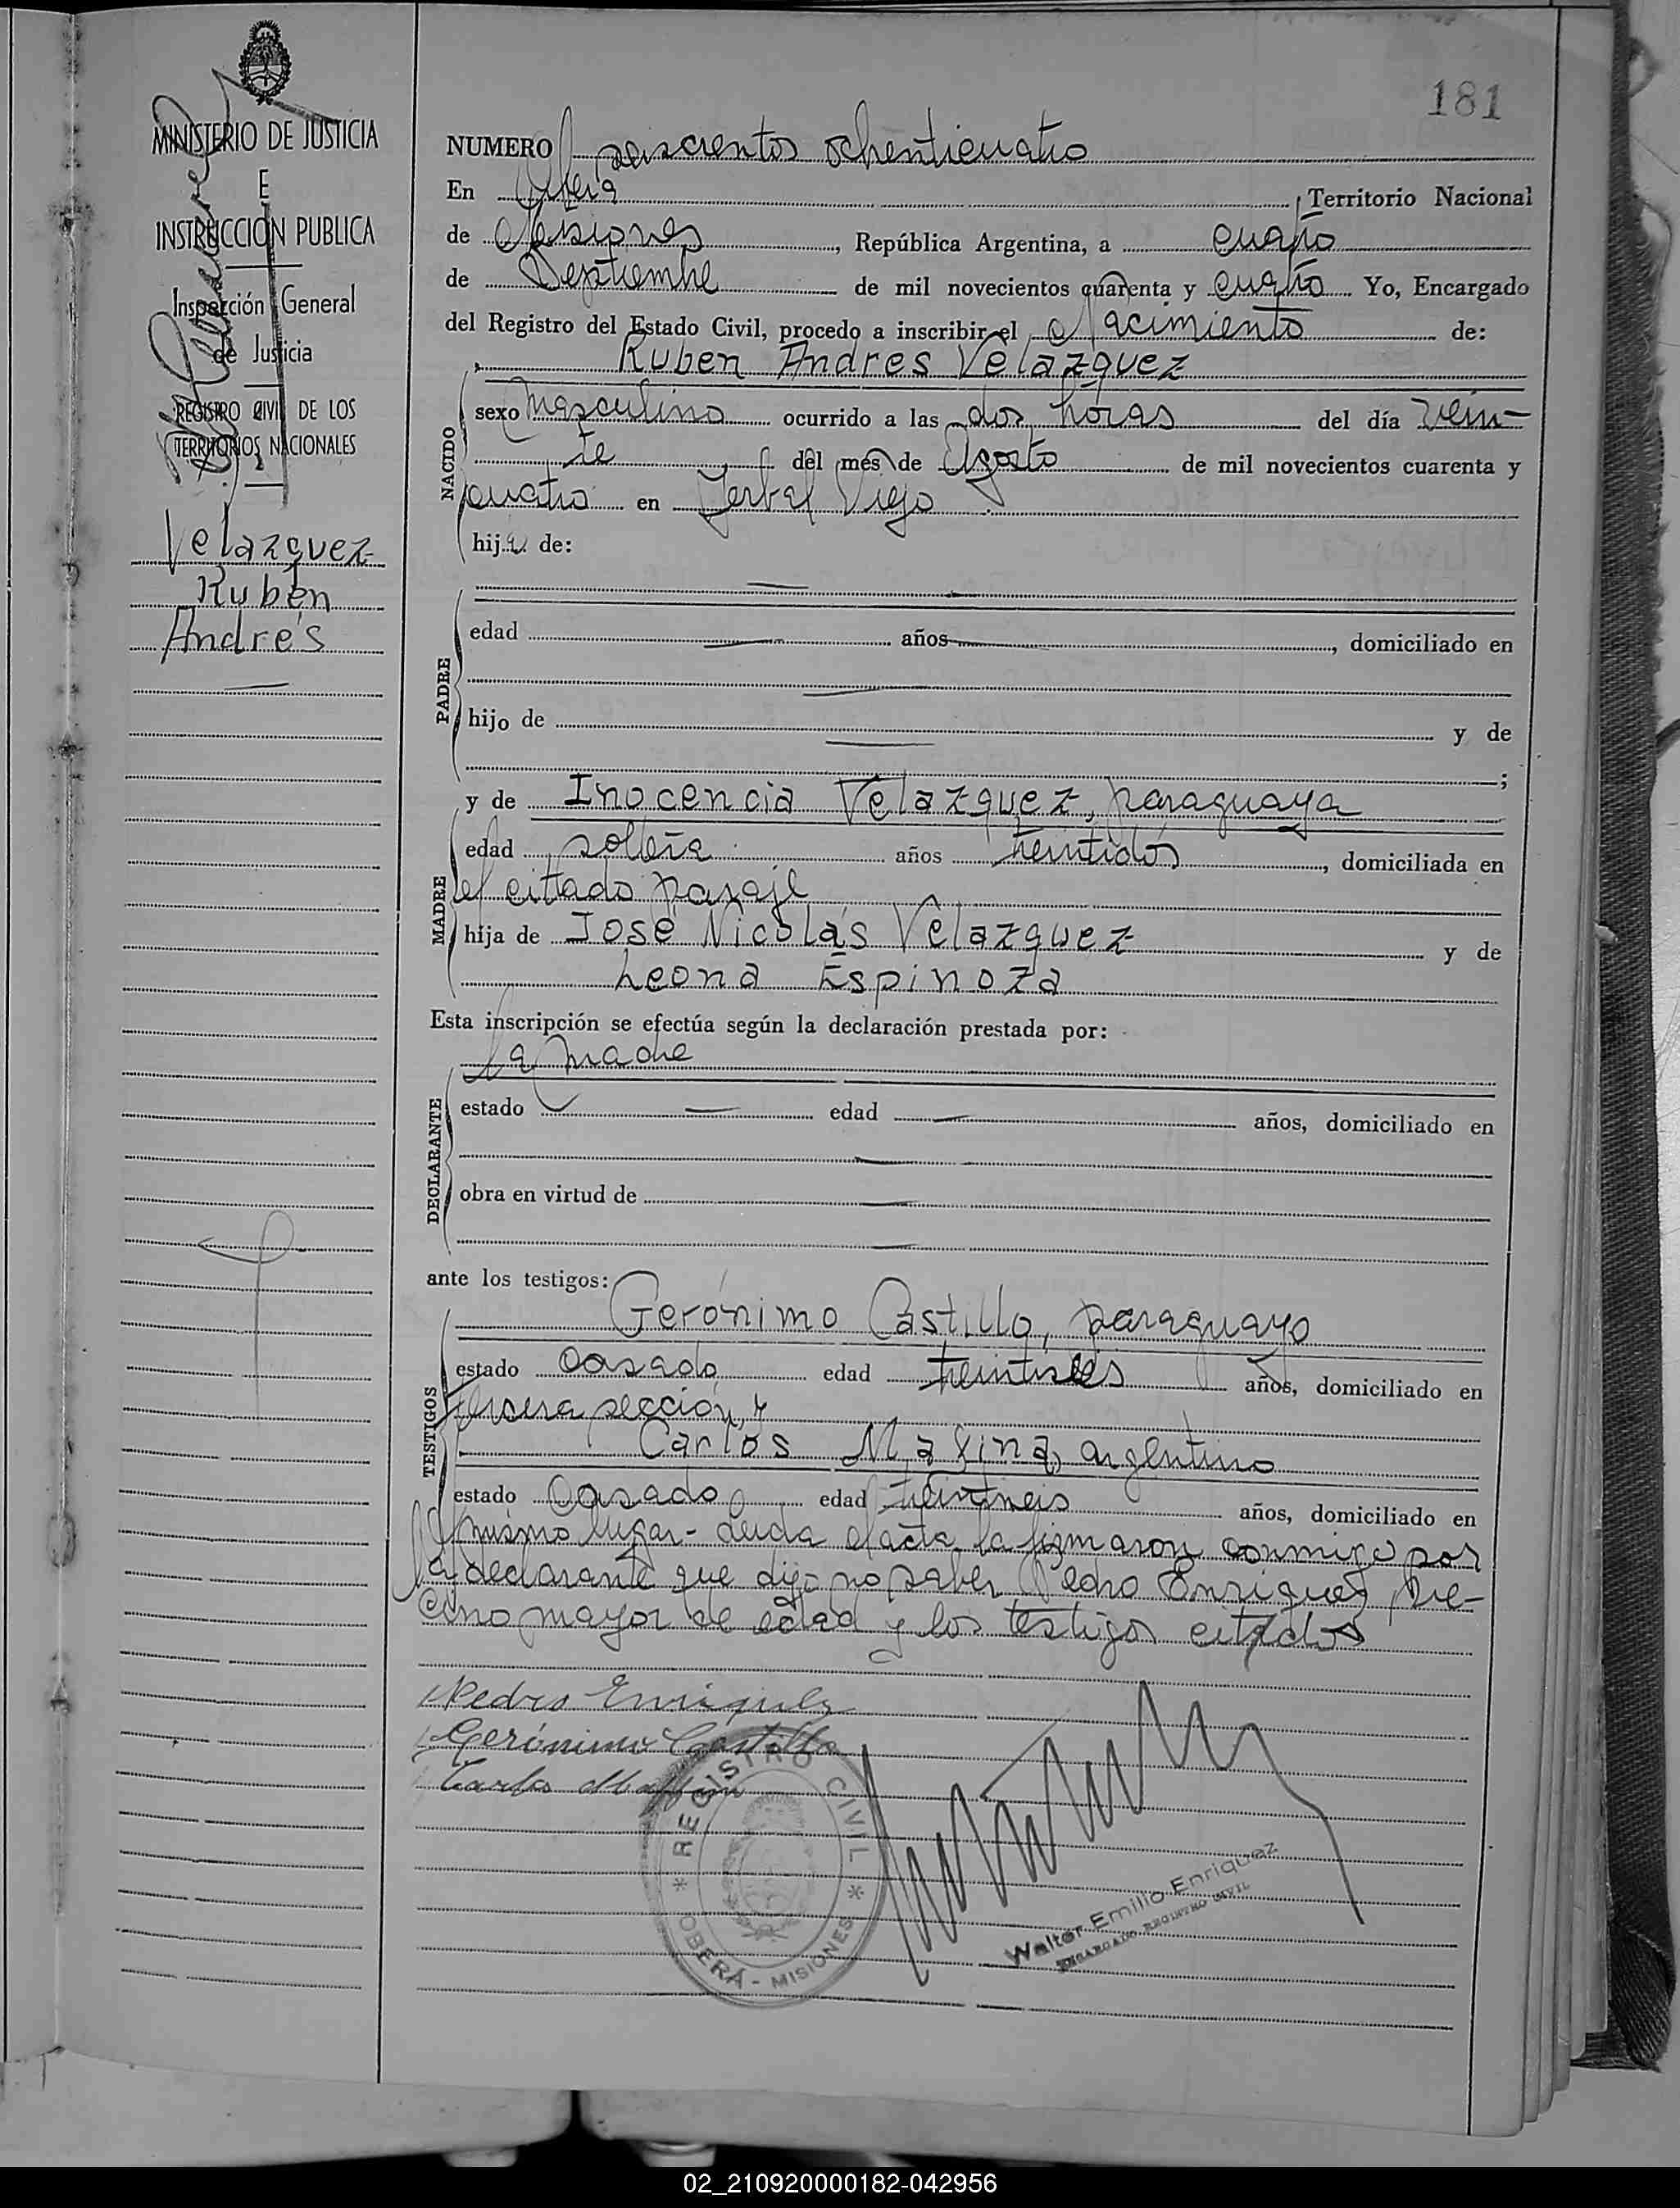 181
MINISTERIO DE JUSTICIA
E
INSTRUCCION PUBLICA
Inspección General
de Justicia
REGISTRO CIVIL DE LOS
TERRITORIOS NACIONALES
Velázquez
Rubén
Andrés
NUMERO seiscientos ochenticuatro
En Oberá, Territorio Nacional
de Misiones, República Argentina, a cuatro
de Septiembre de mil novecientos cuarenta y cuatro Yo, Encargado
del Registro del Estado Civil, procedo a inscribir el Nacimiento de:
Ruben Andres Velazquez
NACIDO
sexo Masculino ocurrido a las dos horas del día vein-
te del mes de Agosto de mil novecientos cuarenta y
cuatro en Yerbal Viejo
hij o de:
PADRE
edad años , domiciliado en
hijo de y de
;
y de Inocencia Velazquez, paraguaya
MADRE
edad soltera años treintidós, domiciliada en
el cittado paraje
hija de José Nicolás Velazquez y de
Leona Espinoza
Esta inscripción se efectúa según la declaración prestada por:
la madre
DECLARANTE
estado edad años, domiciliado en
obra en virtud de
ante los testigos:
Gerónimo Castillo, paraguayo
TESTIGOS
estado casado edad años, domiciliado en
tercera sección, y
Carlos argentino
estado Casado edad años, domiciliado en
el mismo lugar- Leída el acta la firmaron conmigo por
la declarante que dijo no saber Pedro Enriquez, ve-
cino mayor de edad y los testigos citados
Pedro Enriquez
Gerónimo Castillo
Carlos
REGISTRO CIVIL
* OBERÁ - MISIONES *
Walter Emilio Enriquez
ENCARGADO REGISTRO CIVIL
02_210920000182-042956